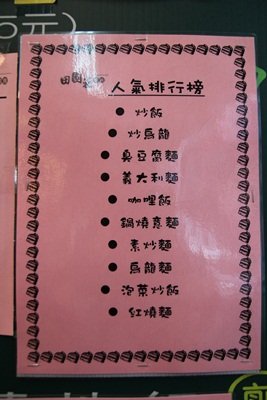 5元)
田園
人氣排行榜
● 炒飯
● 炒烏龍
● 臭豆腐麵
● 義大利麵
● 咖哩飯
● 鍋燒意麵
● 素炒麵
● 烏龍麵
● 泡菜炒飯
● 紅燒麵